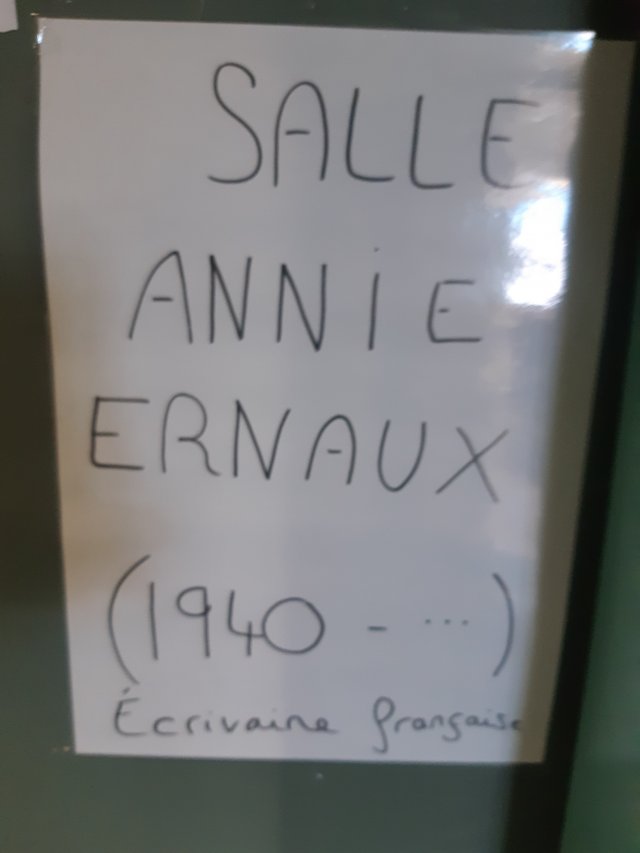 SALLE
ANNiE
ERNAUX
(1940 - ...)
Écrivaine française